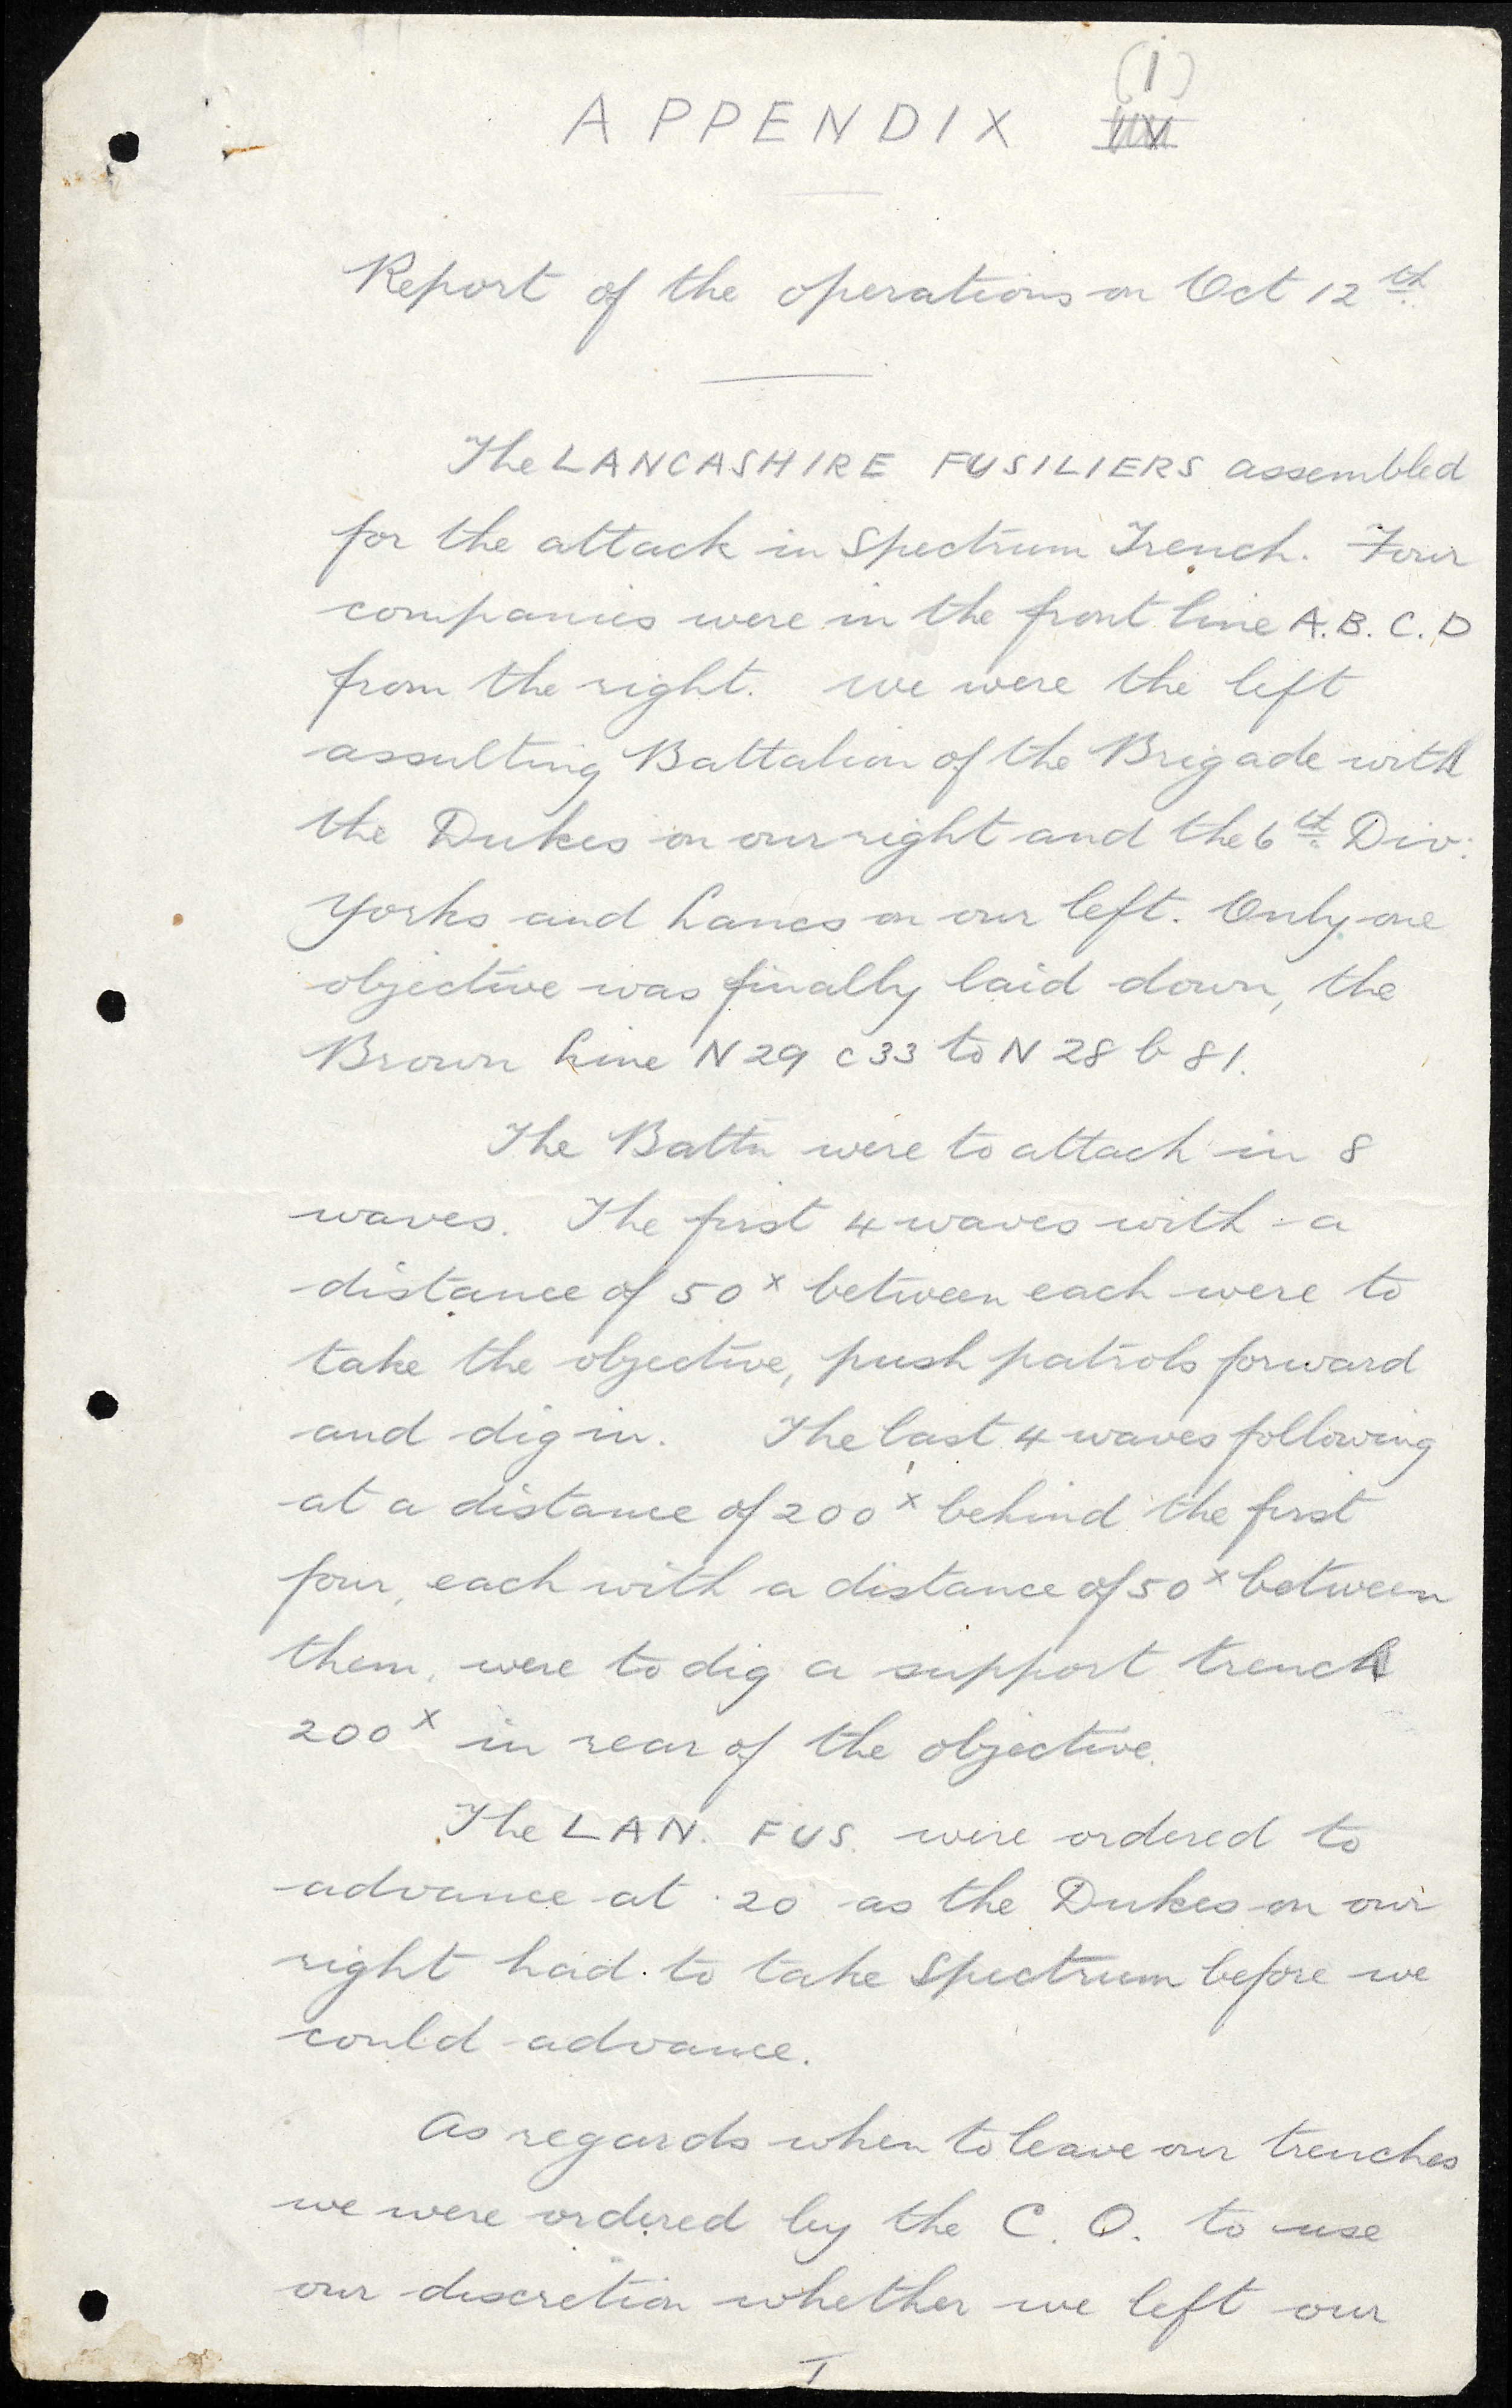 (i)
APPENDIX IV
Report of the operations on Oct 12th
The LANCASHIRE FUSILIERS assembled
for the attack in Spectrum Trench. Four
companies were in the front line A.B.C.D
from the right. we were the left
assulting Battalion of the Brigade with
the Dukes on our right and the 6th Div:
Yorks and Lancs on our left. Only one
objective was finally laid down, the
Brown Line N 29 c 33 to N 28 b 81.
The Battn were to attack in 8
waves. The first 4 waves with a
distance of 50x between each were to
take the objective, push patrols forward
and dig in. The last 4 waves following
at a distance of 200x behind the first
four, each with a distance of 50x between
them, were to dig a support trench
200x in rear of the objective.
The LAN. FUS. were ordered to
advance at .20 as the Dukes on our
right had to take Spectrum before we
could advance.
As regards when to leave our trenches
we were ordered by the C.O. to use
our discretion whether we left our
I